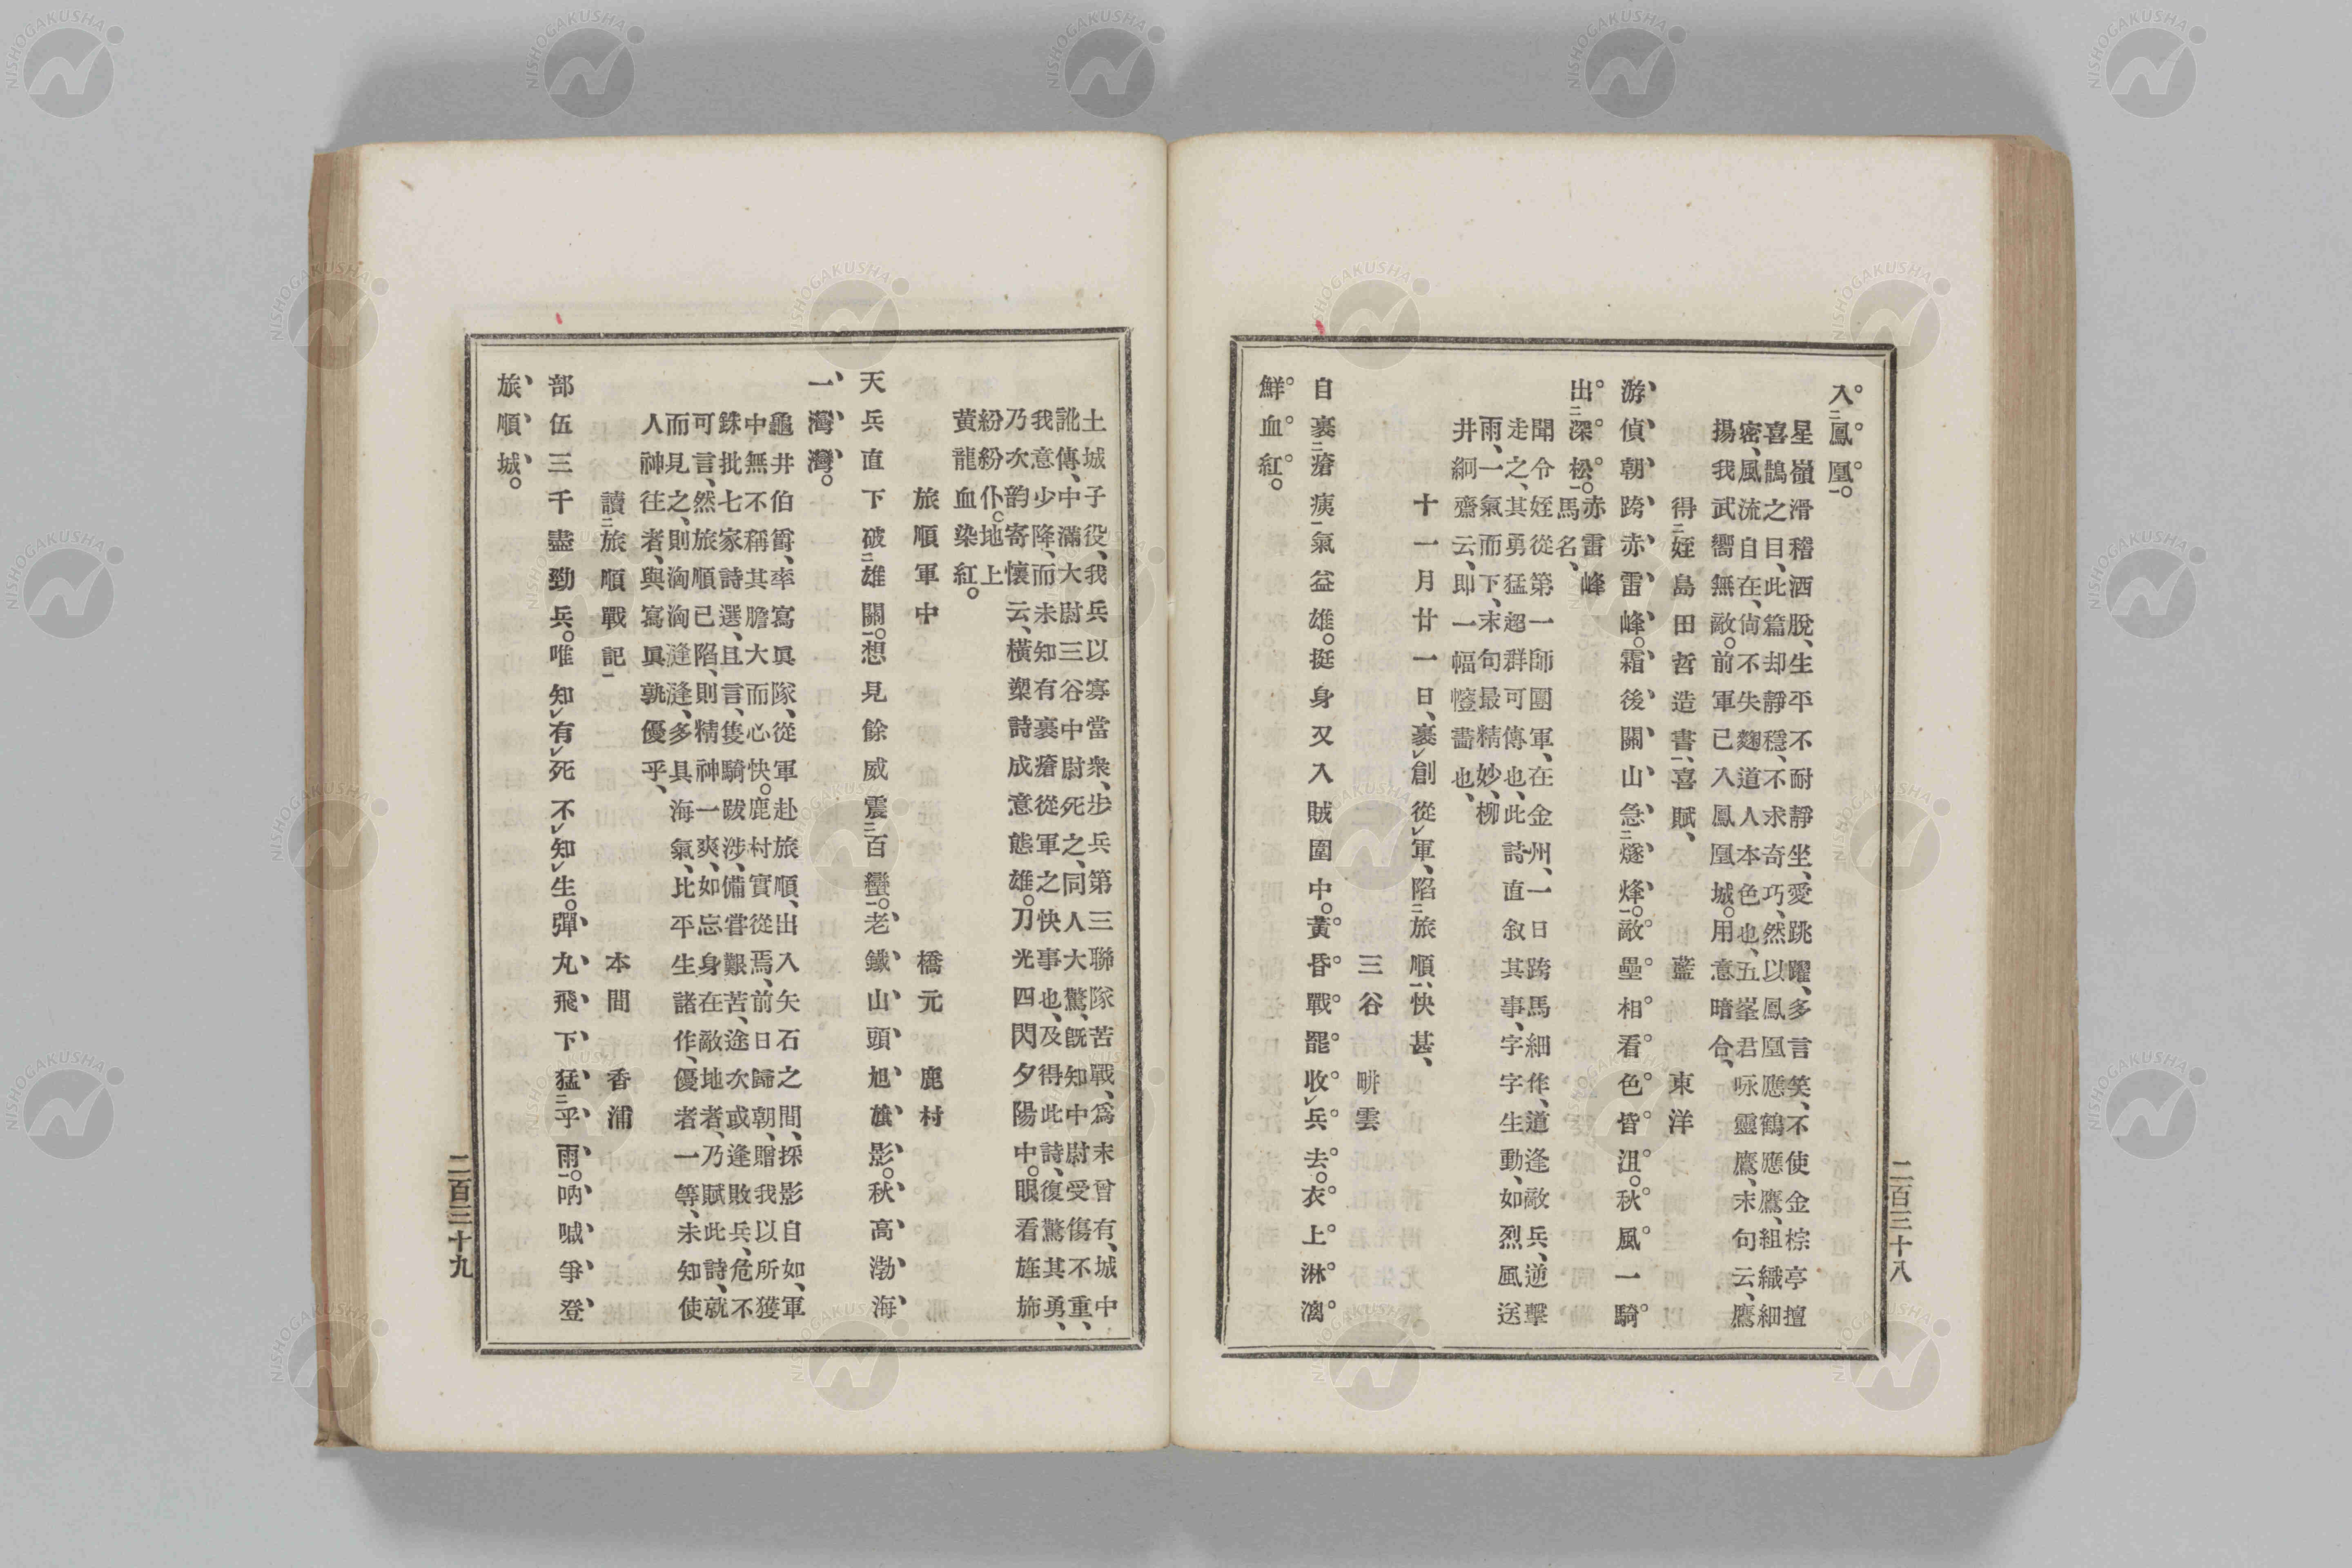 入鳳凰。
星嶺滑稽酒脫、生平不耐靜坐、愛跳躍、多言笑、不使金棕亭擅
喜鵲之目、此篇却靜穩、不求奇巧、然以鳳凰應鶴應鷹、組織細
密、風流自在、尙不失麴道人本色也、五峯君咏靈鷹、末句云、鷹
揚我武嚮無敵。前軍已入鳳凰城。用意暗合、
得二姪島田哲造書一、喜賦、 藍 東洋
游偵朝跨赤雷峰。霜後關山急二燧烽一。敵壘相看色皆沮。秋風一騎
出二深松一。赤雷峰馬名、
聞令姪從第一師團軍、在金州、一日跨馬細作、道逢敵兵、逆擊
走之、其勇猛超群可傳也、此詩直敘其事、字字生動、如烈風送
雨、一氣而下、末句最精妙、柳
井絅齋云、即一幅幛畵也、
十一月廿一日、裹創從軍、陷二旅順一、快甚、
三谷 畊雲
自裹二瘡痍一氣益雄。挺身又入賊圍中。黃昏戰罷收兵去。衣上淋漓
鮮血紅。
二百三十八
土城子役、我兵以寡當衆、步兵第三聯隊苦戰、爲未曾有、城中
訛傳、中滿大尉三谷中尉死之、同人大驚、旣知中尉受傷不重、
我意少降、而未知有裹瘡從軍之快事也、及得此詩、復驚其勇、
乃次韵寄懷云、橫槊詩成意態雄。刀光四閃夕陽中。眼看旌旆
紛紛仆。地上
黃龍血染紅。
旅順軍中 橋元 鹿村
天兵直下破二雄關一。想見餘威震二百蠻一。老鐵山頭旭旗影。秋高渤海
一灣灣。
龜井伯爵、率寫眞隊、從軍赴旅順、出入矢石之間、採影自如、軍
中無不稱其膽大而心快。鹿村實從焉、前日歸朝、贈我以所獲
銖批七家詩選、且言、隻騎跋涉、備嘗艱苦、途次或逢敗兵、危不
可言、然旅順已陷、則精神一爽、如忘身在敵地者、乃賦此詩、就
而見之、則渢渢逢逢、多具海氣、比平生諸作、優者一等、未知使
人神往者、與寫眞孰優乎、
讀二旅順戰記一 本間 香浦
部伍三千盡勁兵。唯知有死不知生。彈丸飛下猛二乎雨一。吶喊爭登
旅順城。
二百三十九